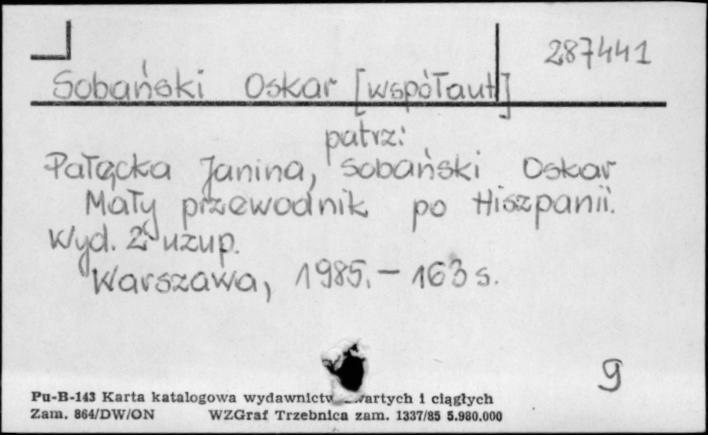 287441
Sobański Oskar [współaut]
patrz:
Pałęcka Janina, Sobański Oskar
Mały przewodnik po Hiszpanii.
Wyd. 2 uzup.
Warszawa, 1985. – 163 s.
9
Pu-B-143 Karta katalogowa wydawnictw i ciągłych
Zam. 864/DW/ON WZGraf Trzebnica zam. 1337/85 5.980.000